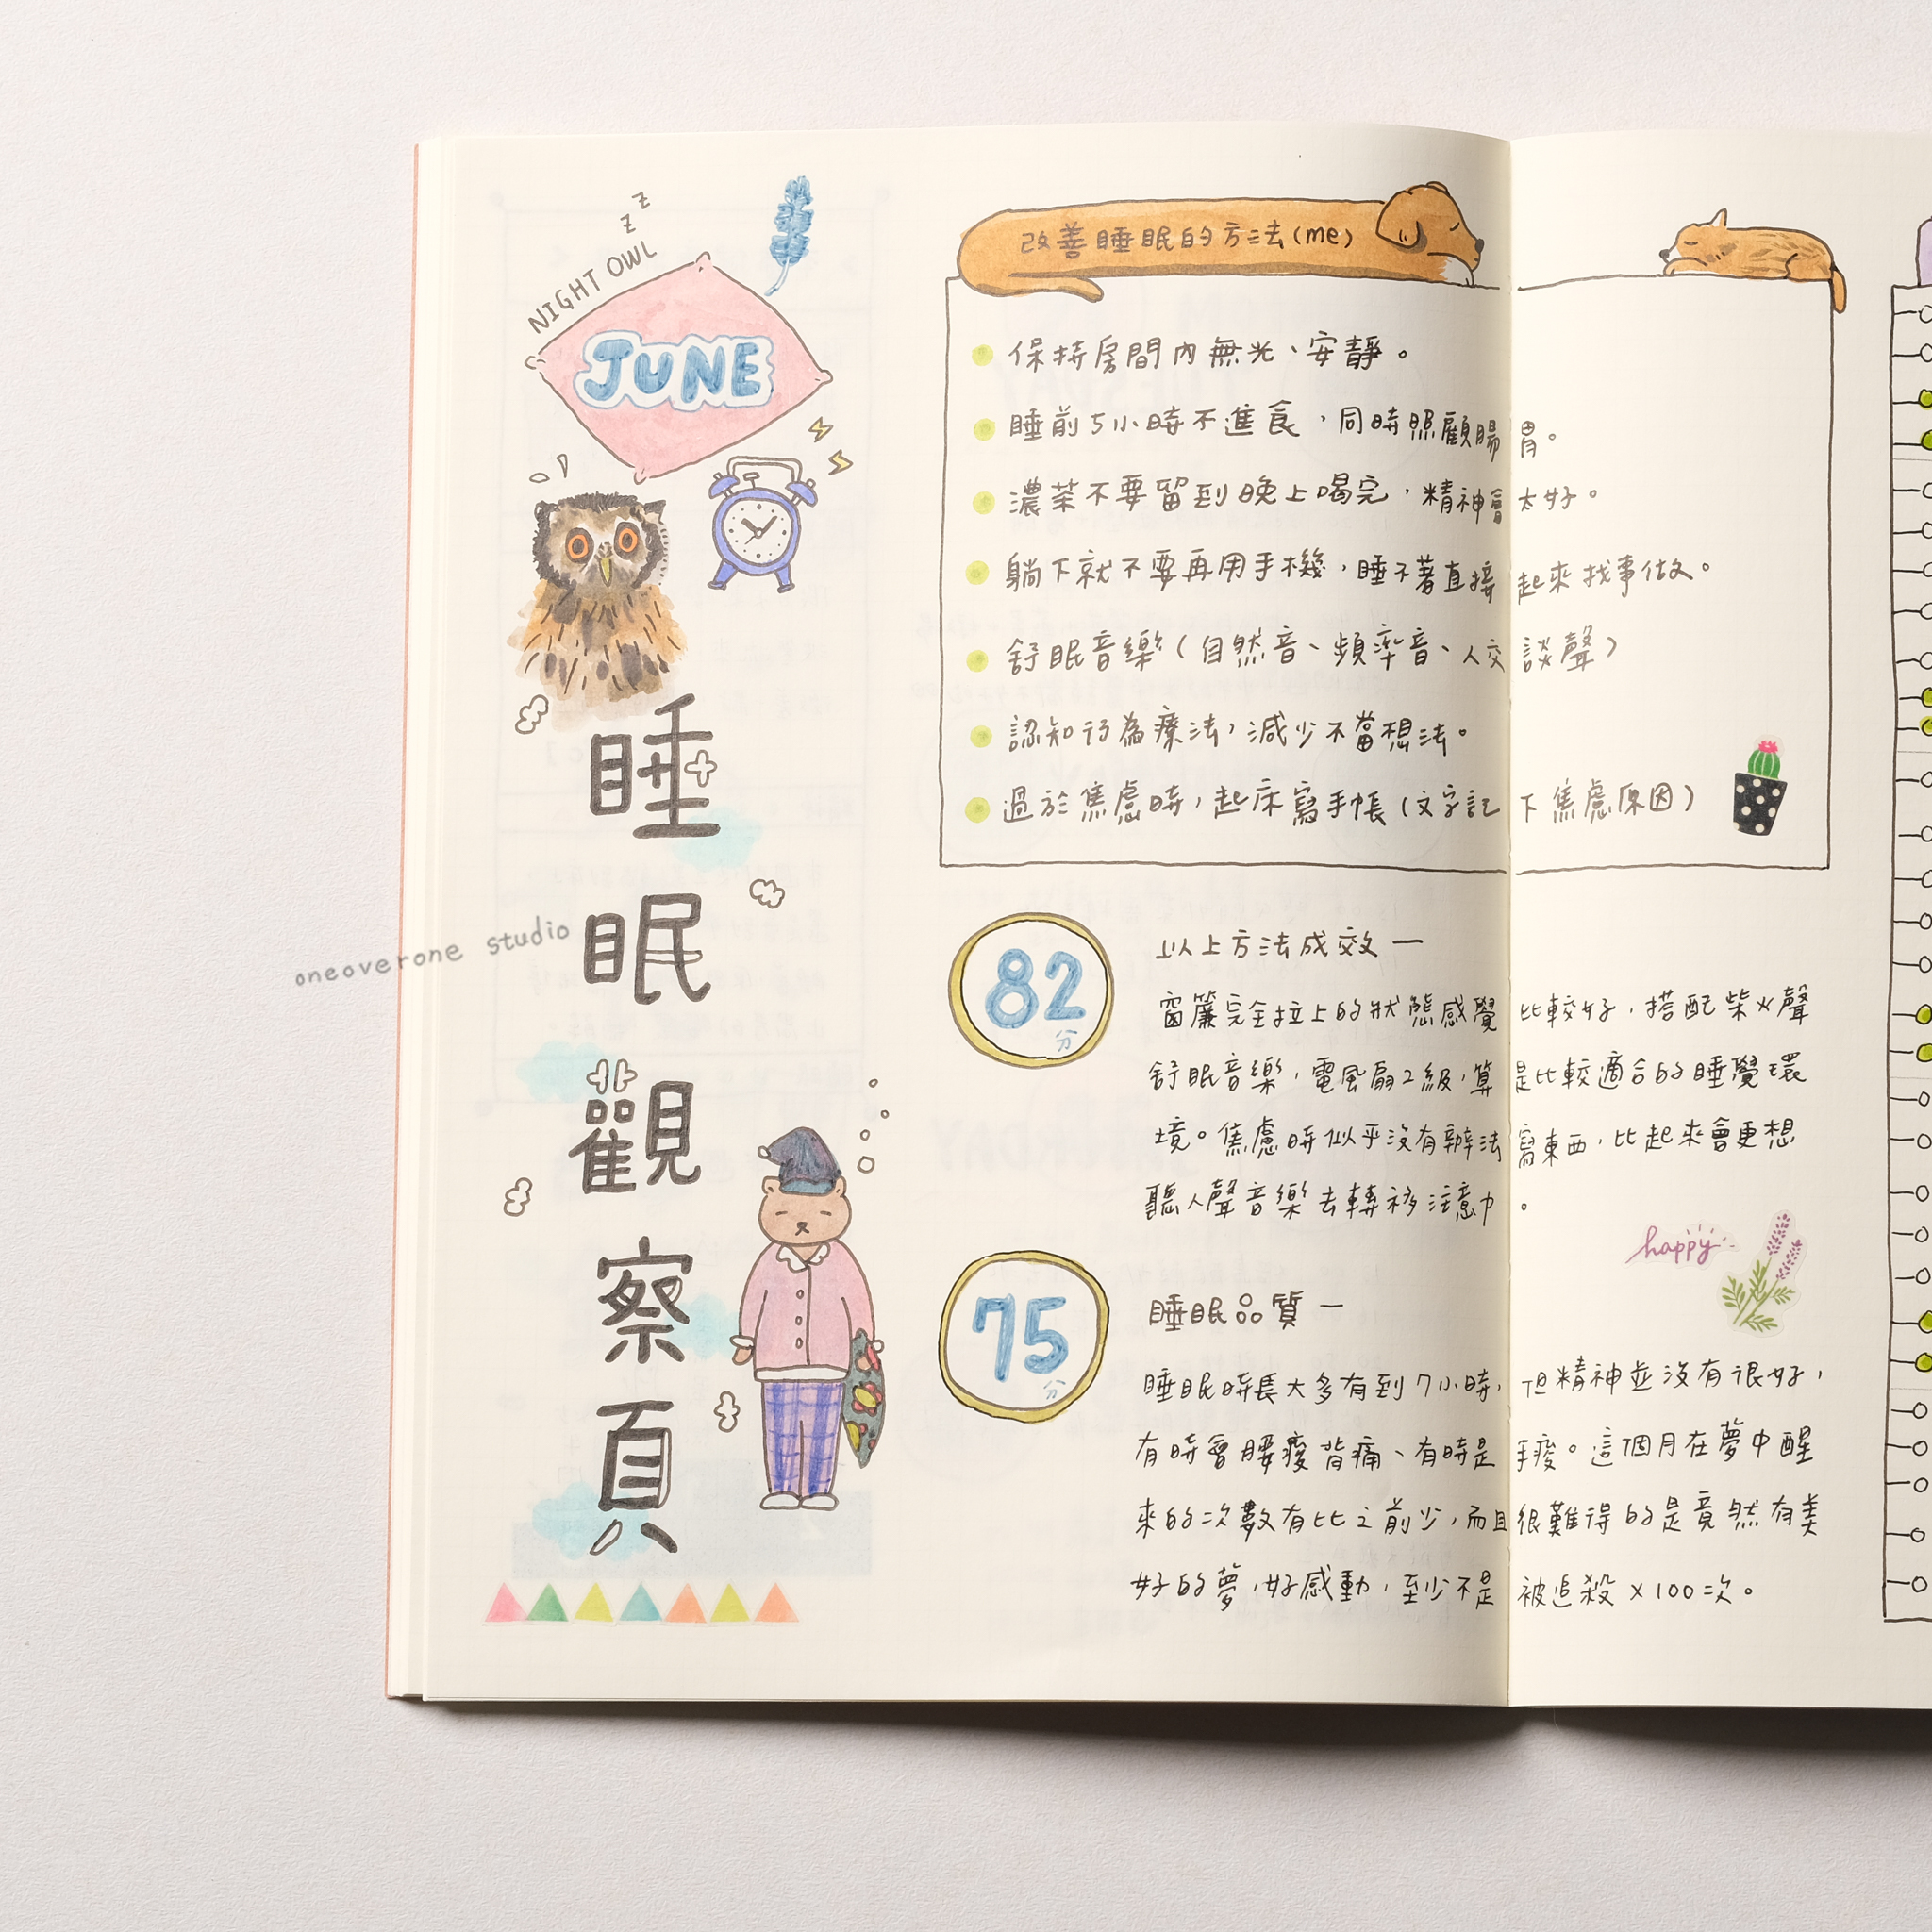 z
z
NIGHT OWL
JUNE
睡眠觀察頁
oneoverone studio
改善睡眠的方法(me)
保持房間內無光、安靜。
睡前5小時不進食，同時照顧腸胃。
濃茶不要留到晚上喝完，精神會太好。
躺下就不要再用手機，睡不著直接起來找事做。
舒眠音樂(自然音、頻率音、人交談聲)
認知行為療法，減少不當想法。
過於焦慮時，起床寫手帳(文字記下焦慮原因)
82分
以上方法成效—
窗簾完全拉上的狀態感覺比較好，搭配柴火聲
舒眠音樂，電風扇2級，算是比較適合的睡覺環
境。焦慮時似乎沒有辦法寫東西，比起來會更想
聽人聲音樂去轉移注意力。
happy
75分
睡眠品質—
睡眠時長大多有到7小時，但精神並沒有很好，
有時會腰痠背痛、有時是手痠。這個月在夢中醒
來的次數有比之前少，而且很難得的是竟然有美
好的夢，好感動，至少不是被追殺x100次。